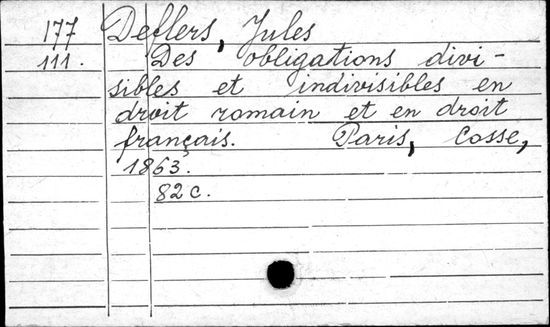 177 Deflers, Jules
111. Des obligations divi-
sibles et indivisibles en
droit romain et en droit
français. Paris, Cosse,
1863.
82 c.